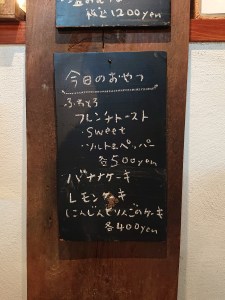 1200yen
今日のおやつ
ふわとろ
フレンチトースト
・sweet
・ソルト&ペッパー
各500yen
・バナナケーキ
レモンケーキ
にんじんとりんごのケーキ
各400yen